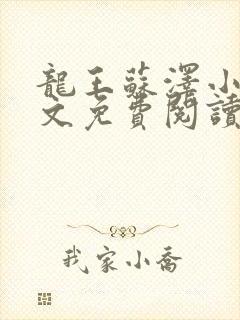 龍王蘇澤小
文免費閱讀
我家小喬